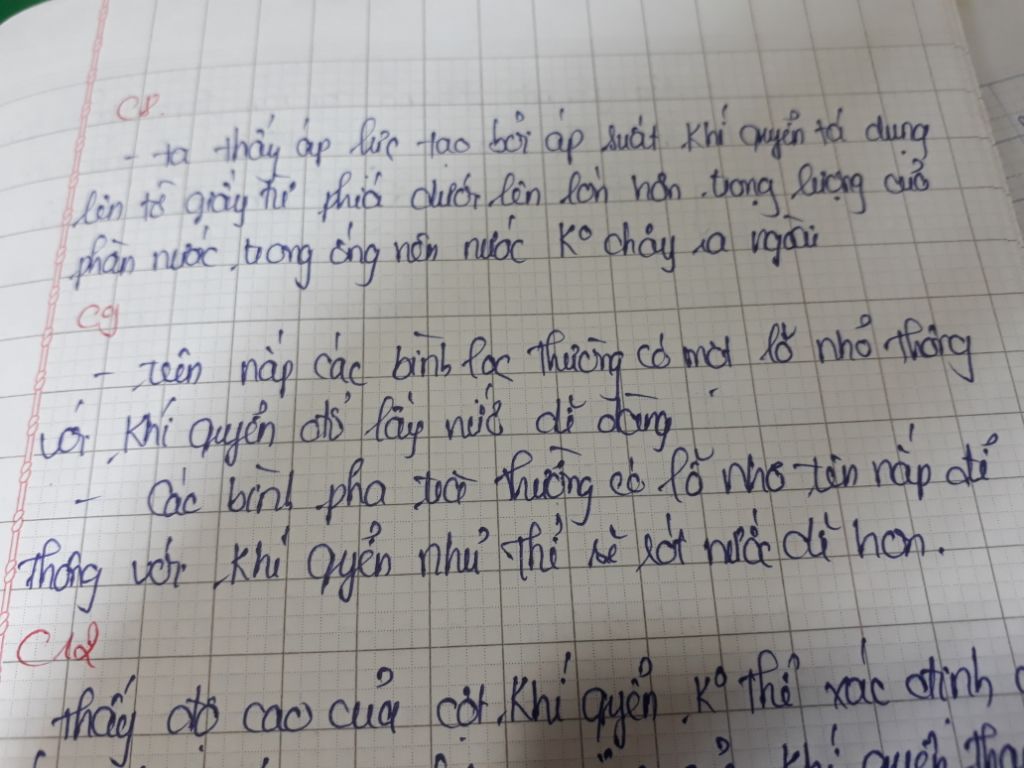 C8.
- ta thấy áp lực tạo bởi áp suất khí quyển tá dụng
lên tờ giấy từ phía dưới lên lớn hơn trọng lượng của
phần nước trong ống nên nước Kº chảy ra ngoài
C9
- trên nắp các bình lọc thường có một lỗ nhỏ thông
với khí quyển để lấy nước dễ dàng
- Các bình pha trà thường có lỗ nhỏ trên nắp để
thông với khí quyển như thế sẽ rót nước dễ hơn.
C12
thấy độ cao của cột khí quyển Kº thể xác định
khí quyển